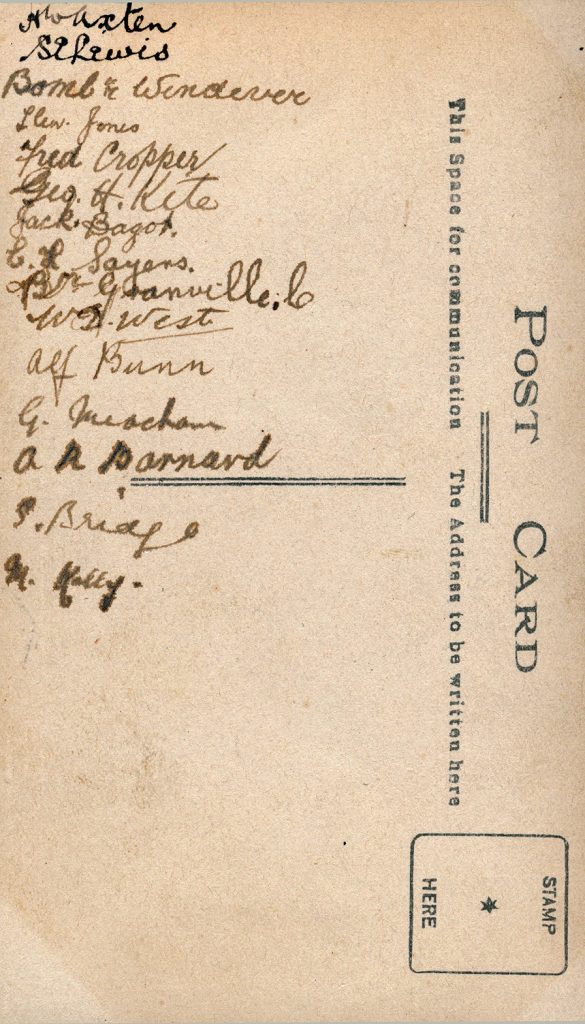 H W Axten
S E Lewis
Bombr Windever
Llew. Jones
Fred Cropper
Geo. H. Kete
Jack. Bagot.
C. H. Sayers.
Br Granville. C
W D. West
Alf Bunn
G. Meacham
A R Barnard
S. Bridge
M. Kelly.
POST CARD
This Space for communication The Address to be written here
STAMP
HERE